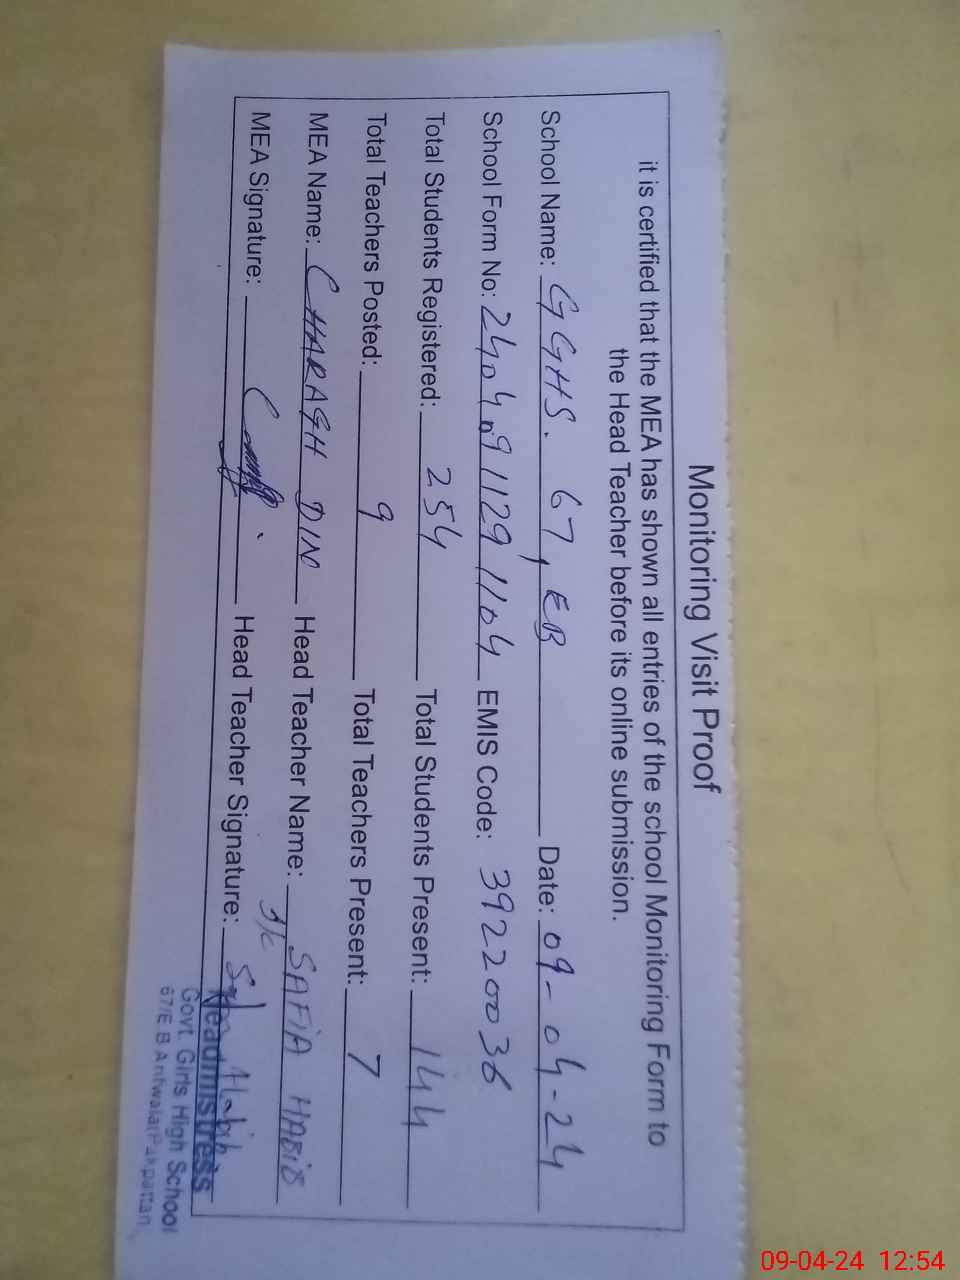 Monitoring Visit Proof
it is certified that the MEA has shown all entries of the school Monitoring Form to
the Head Teacher before its online submission.
School Name: GGHS. 67, EB Date: 09-04-24
School Form No: 240409 1129 1104 EMIS Code: 39220036
Total Students Registered: 254 Total Students Present: 144
Total Teachers Posted: 9 Total Teachers Present: 7
MEA Name: CHARAGH DIN Head Teacher Name: SAFIA HABIB
MEA Signature: Head Teacher Signature: Habib
Headmistress
Govt. Girls High School
67/E B Pakpattan
09-04-24 12:54